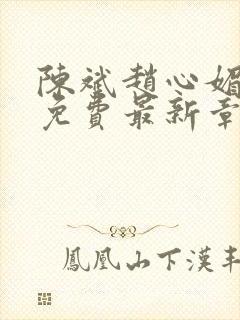 陳斌趙心媚
免費最新章
鳳凰山下漢丰